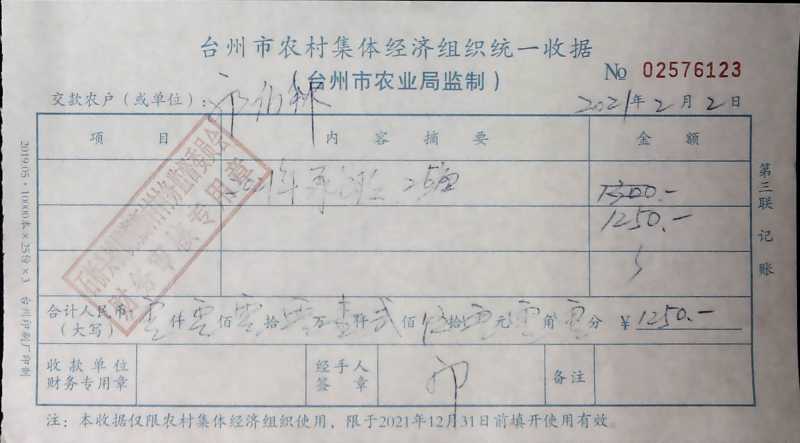 台州市农村集体经济组织统一收据
(台州市农业局监制)
№ 02576123
交款农户（或单位）：
2021年2月2日
项目 内容摘要 金额
1300.-
1250.-
合计人民币：
(大写)
零仟零佰零拾零万壹仟贰佰伍拾零元零角零分 ¥1250.-
收款单位
财务专用章
经手人
签章
备注
注：本收据仅限农村集体经济组织使用，限于2021年12月31日前填开使用有效。
第三联 记账
2019.05·10000本×25份×3 台州印刷厂印制
财务审核专用章